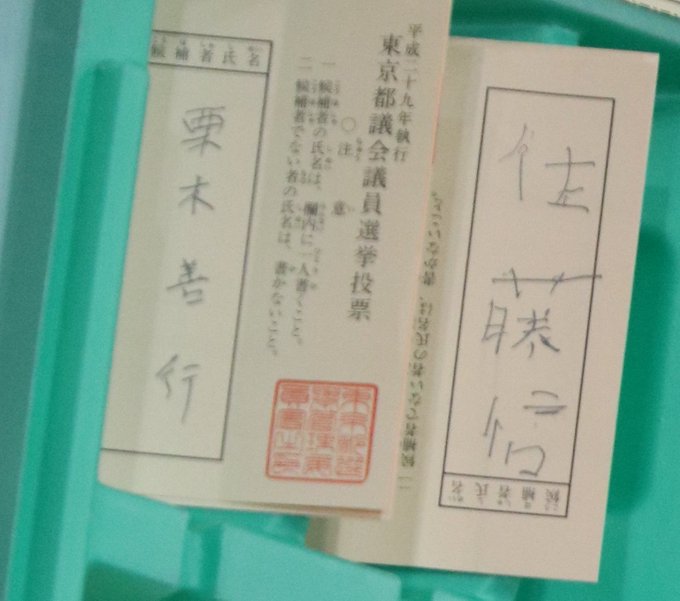 平成二十九年執行
東京都議会議員選挙投票
○注意
一 候補者の氏名は、欄内に一人書くこと。
二 候補者でない者の氏名は、書かないこと。
候補者氏名
栗木善行
佐藤信
候補者氏名
二 候補者でない者の氏名は、書かないこと。